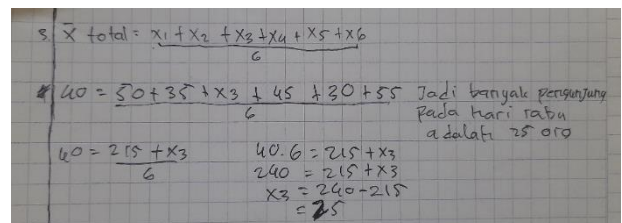 3. x̄ total = x1 + x2 + x3 + x4 + x5 + x6
6
40 = 50 + 35 + x3 + 45 + 30 + 55
6
Jadi banyak pengunjung
Pada hari rabu
adalah 25 org
40 = 215 + x3
6
40.6 = 215 + x3
240 = 215 + x3
x3 = 240 - 215
= 25